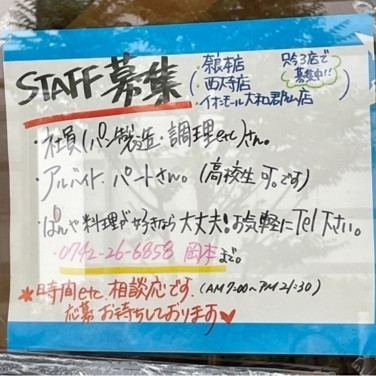 STAFF 募集
(・奈良本店
・西大寺店
・イオンモール大和郡山店)
只今3店で
募集中!!
・社員(パン製造・調理etc)さん。
・アルバイト、パートさん。(高校生可。です)
・ぱんや料理が好きなら大丈夫!お気軽にTel下さい。
・0742-26-6858 岡本まで。
*時間etc.相談応です.(AM7:00~PM21:30)
応募お待ちしております♥